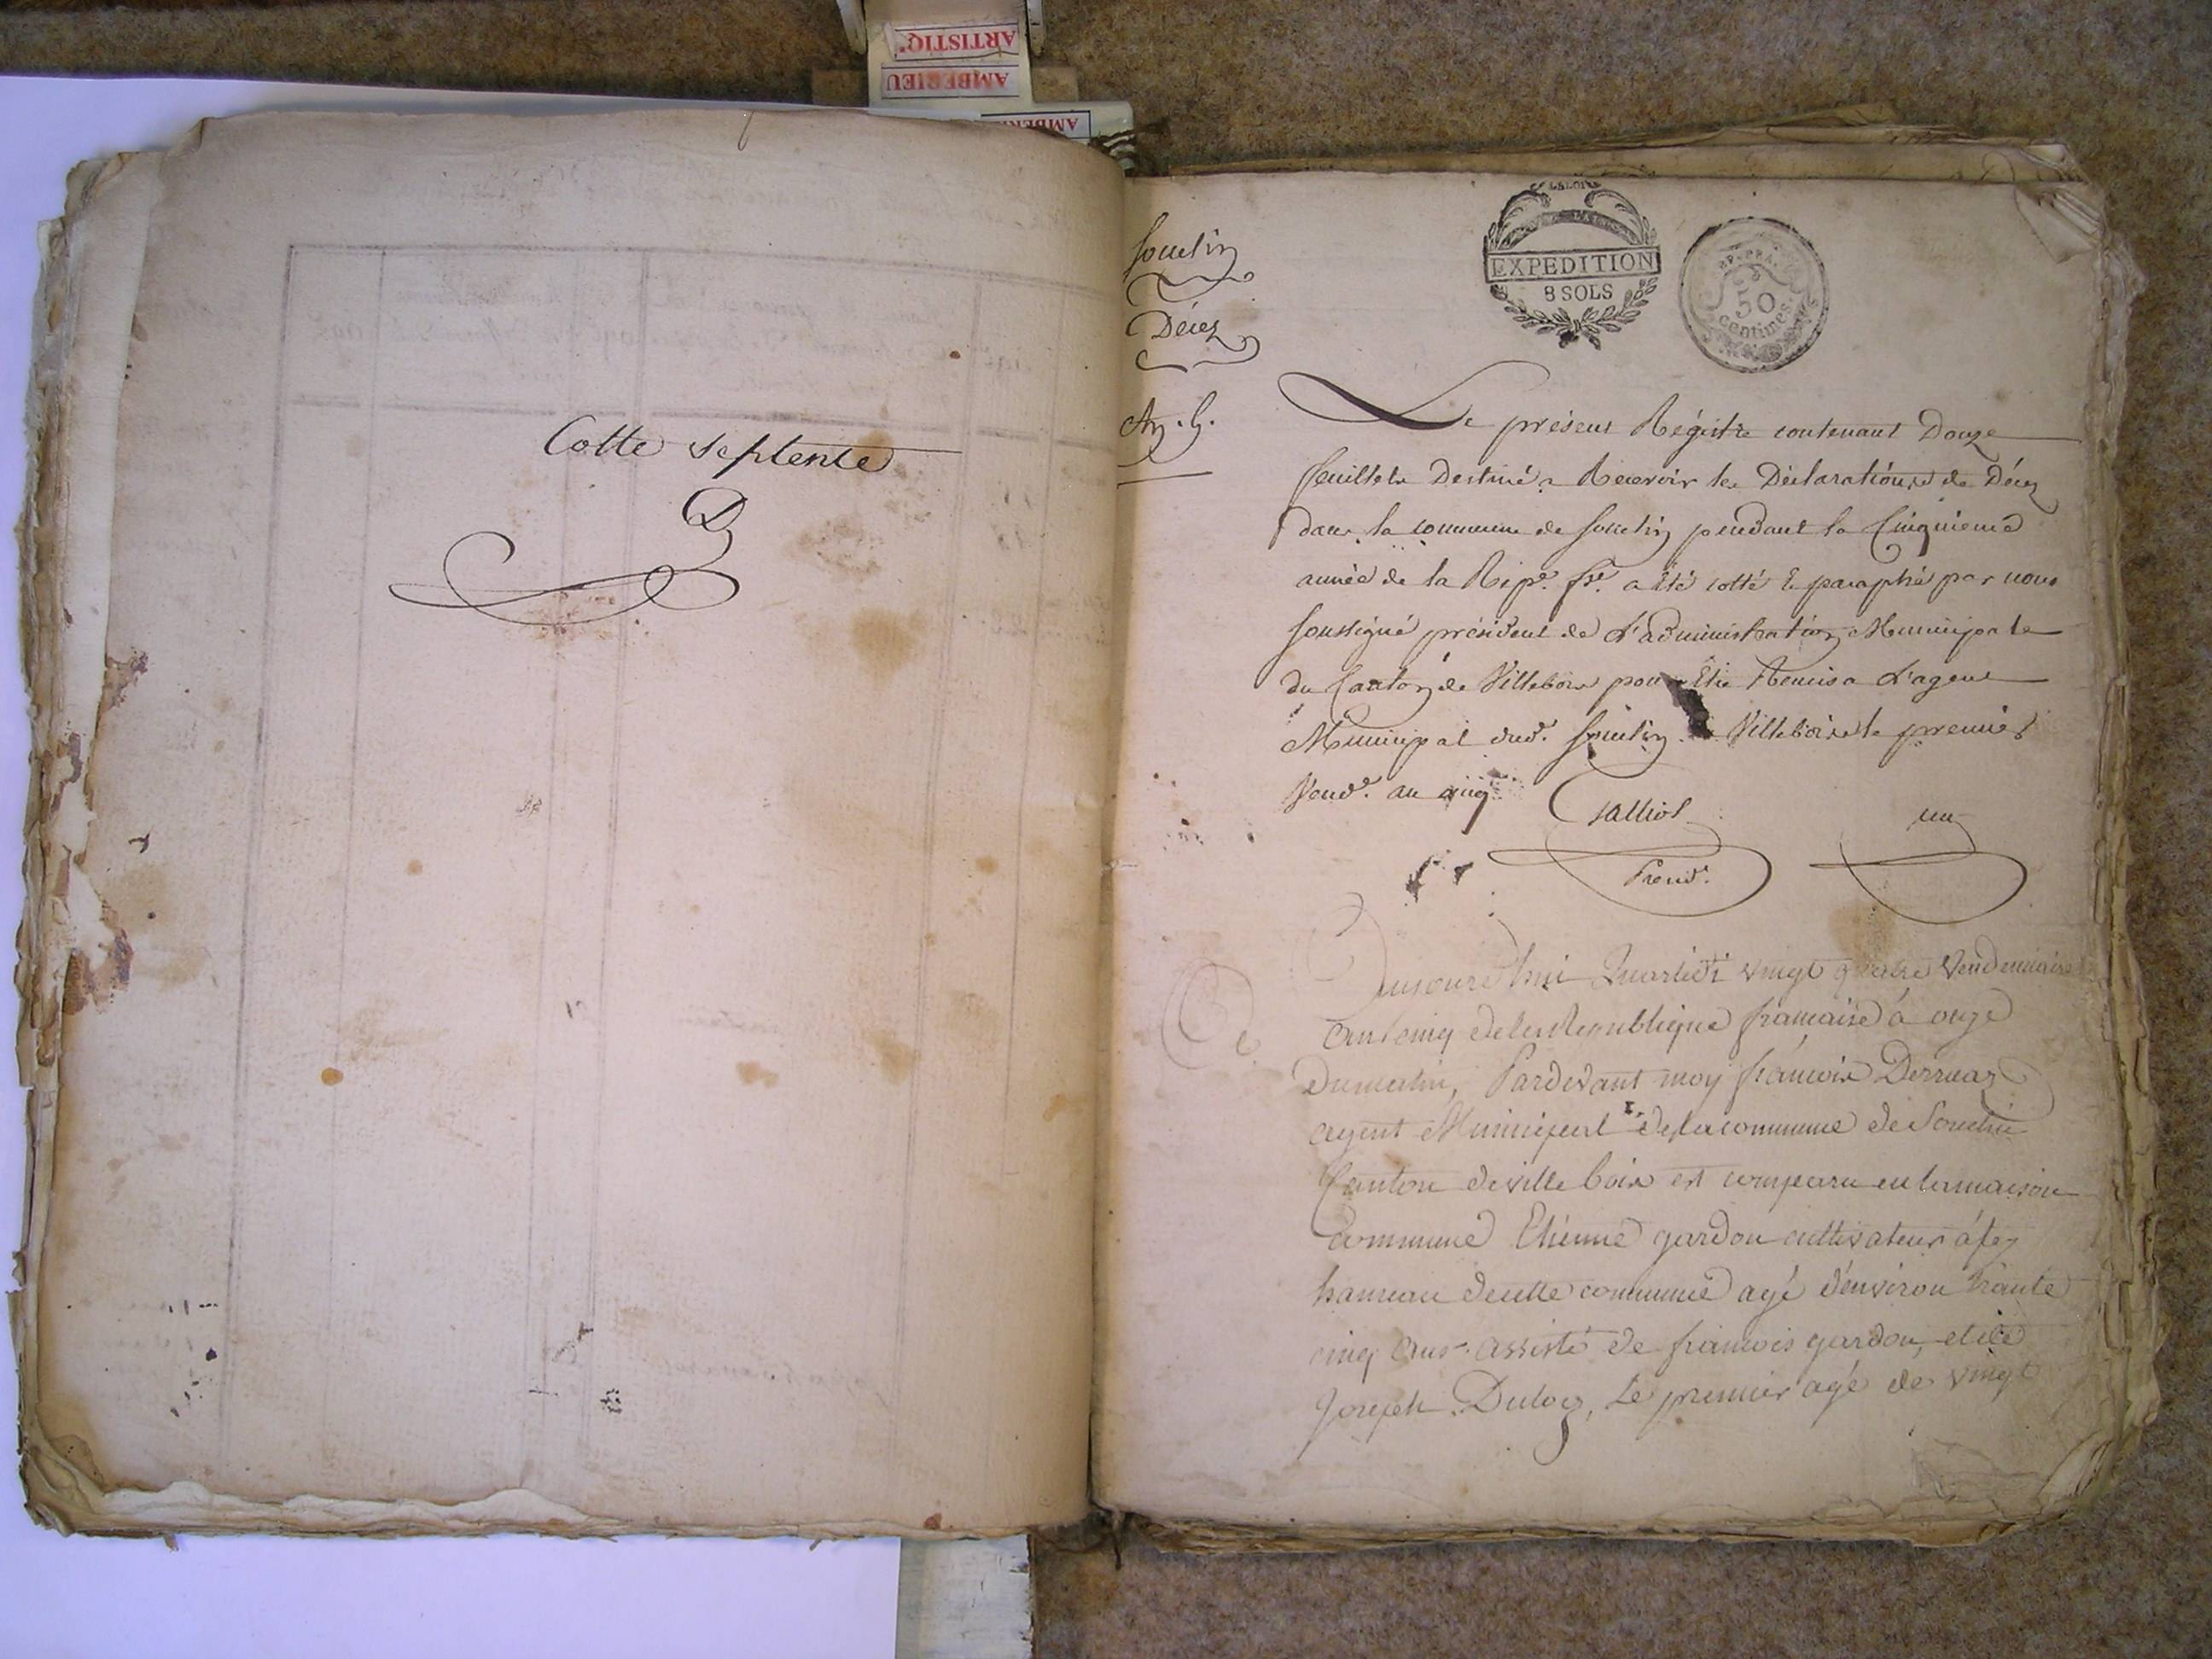 ARTISTIQ'
AMBERIEU
AMBERI
Cotte septente
Souclin
Décez
An. 5.
LA LOI
EXPEDITION
8 SOLS
50
Centimes
Le présent Régistre contenant Douze
feuillets Destiné a Recevoir les Déclarations de Décez
dans la commune de Souclin pendant la Cinquieme
année de la Rép.e fse. a Eté cotté & paraphé par nous
soussigné président de L'administration Municipale
du Canton de Villebois pour Etre Remis a L'agent
Municipal dud. Souclin a Villebois le premier
Vend.e an cinq.
un
Presid.
Aujourd'hui Quartidi vingt quatre Vendemiaire
an cinq de la Republique francaise á onze
du matin, Pardevant moy francois Derruaz
agent Municipal de la commune de Souclin
Canton de ville bois est comparu en la maison
commune Etienne gardon cultivateur á fay
hameau de cette commune agé d'environ trante
cinq ans assisté de francois gardon, et de
Joseph Duloz, Le premier agé de vingt